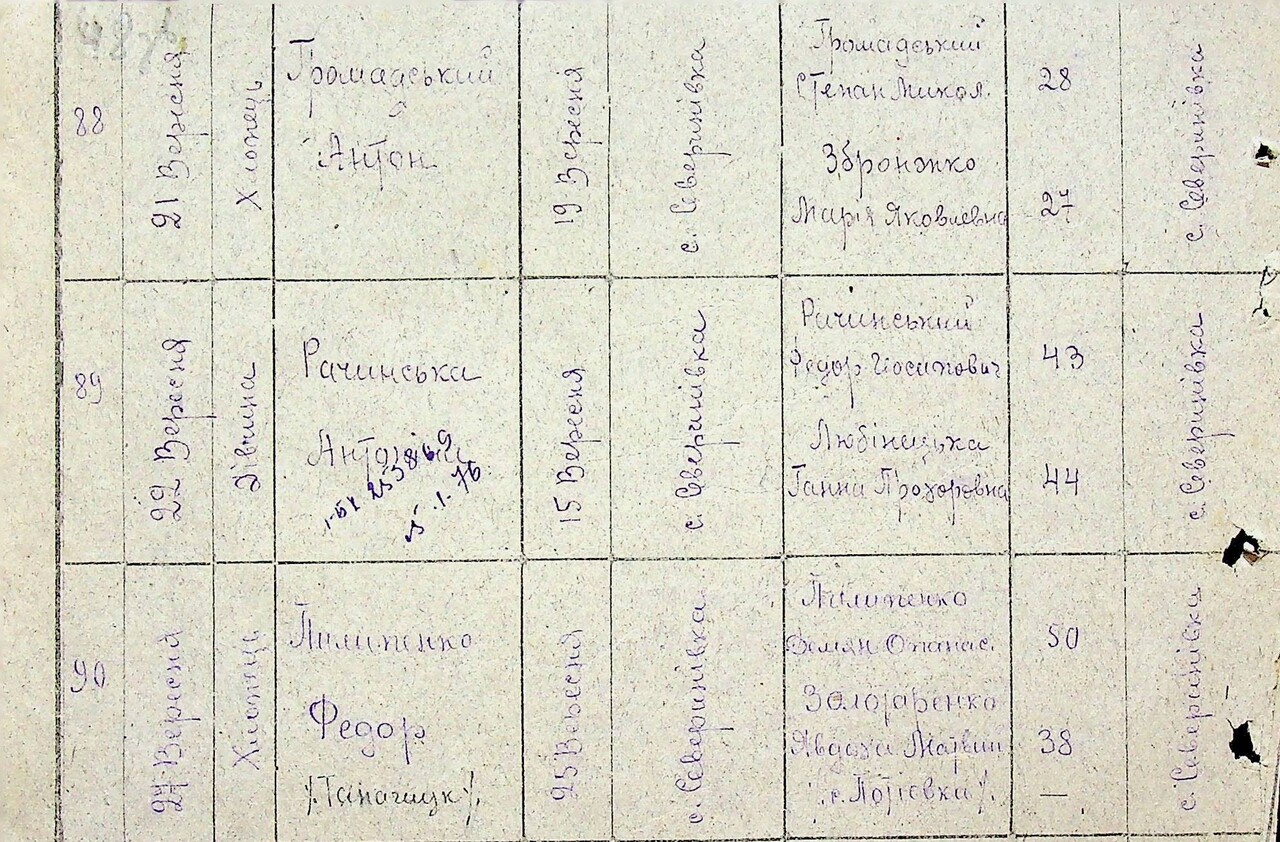 88
21 Вересня
Хлопець
Громадський
Антон
19 Вересня
с. Северинівка
Громадський
Степан Микол.
28
Збронжко
Марія Яковлевна
27
с. Северинівка
89
22 Вересня
Дівчина
Рачинська
Антоніна
5.1.76
15 Вересня
с. Северинівка
Рачинський
Федор Йосипович
43
Любінецька
Ганна Прохоровна
44
с. Северинівка
90
27 Вересня
Хлопець
Пилипенко
Федор
25 Вересня
с. Северинівка
Пилипенко
Демян Опанас.
50
Золотаренко
Явдоха
38
—
с. Северинівка